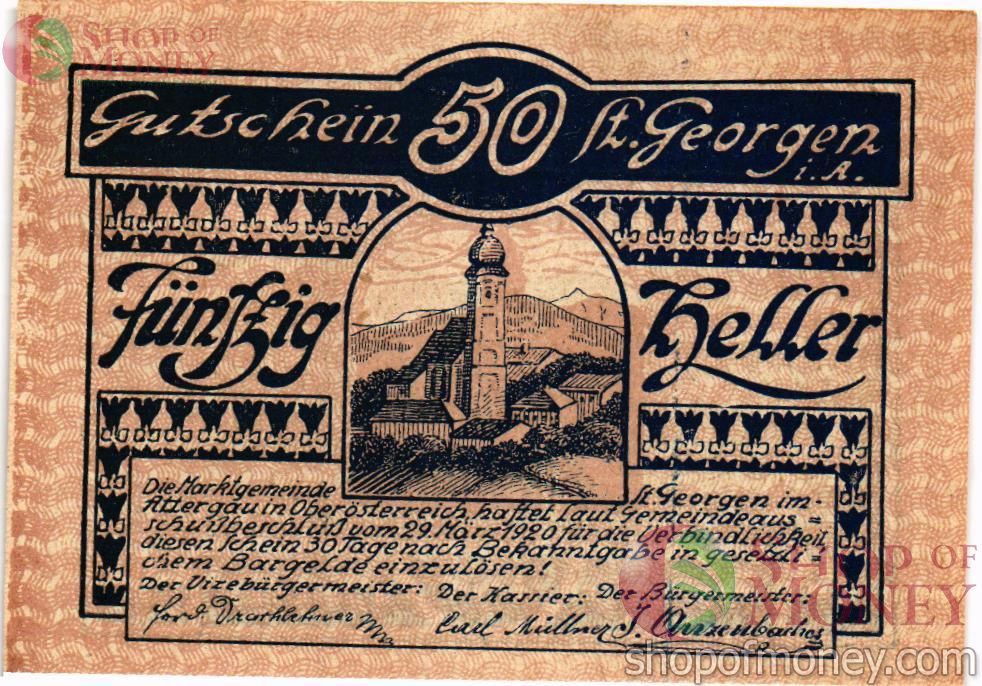 SHOP OF
MONEY
Gutschein 50 St. Georgen
i. A.
Fünfzig Heller
Die Marktgemeinde St. Georgen im-
Attergau in Oberösterreich, haftet laut Gemeindeaus=
schußbeschluß vom 29. März 1920 für die Verbindlichkeit
diesen Schein 30 Tage nach Bekanntgabe in gesetzli=
chem Bargelde einzulösen!
Der Vizebürgermeister: Der Kassier: Der Bürgermeister:
Carl Müllner
SHOP OF
MONEY
shopofmoney.com